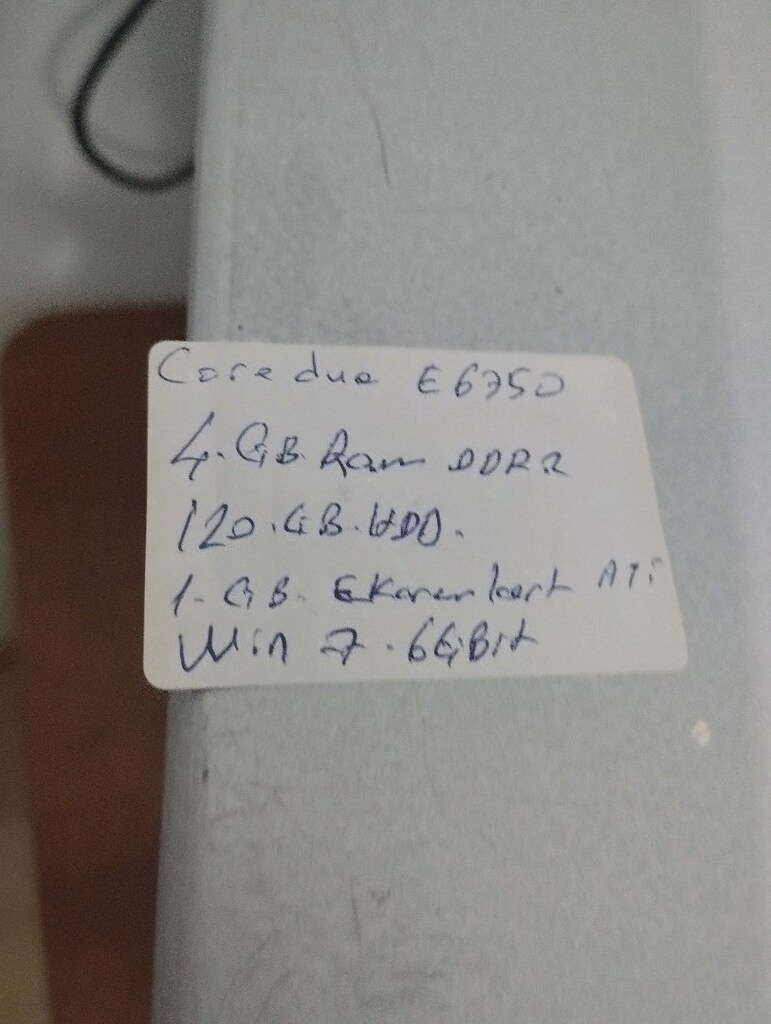 Core duo E6750
4.GB.Ram DDR2
120.GB.HDD.
1.GB. Ekran kart ATi
Win 7.64Bit